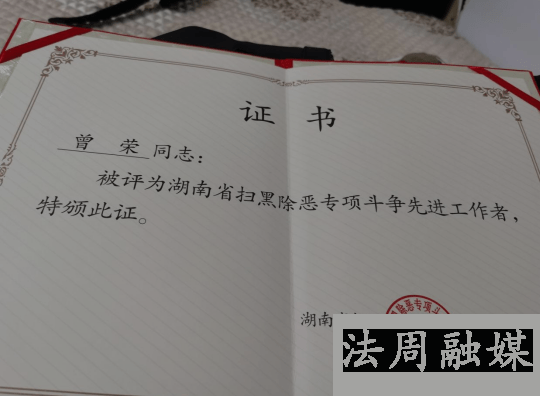 证书
曾荣同志：
被评为湖南省扫黑除恶专项斗争先进工作者，
特颁此证。
湖南
除恶专项斗
法周融媒